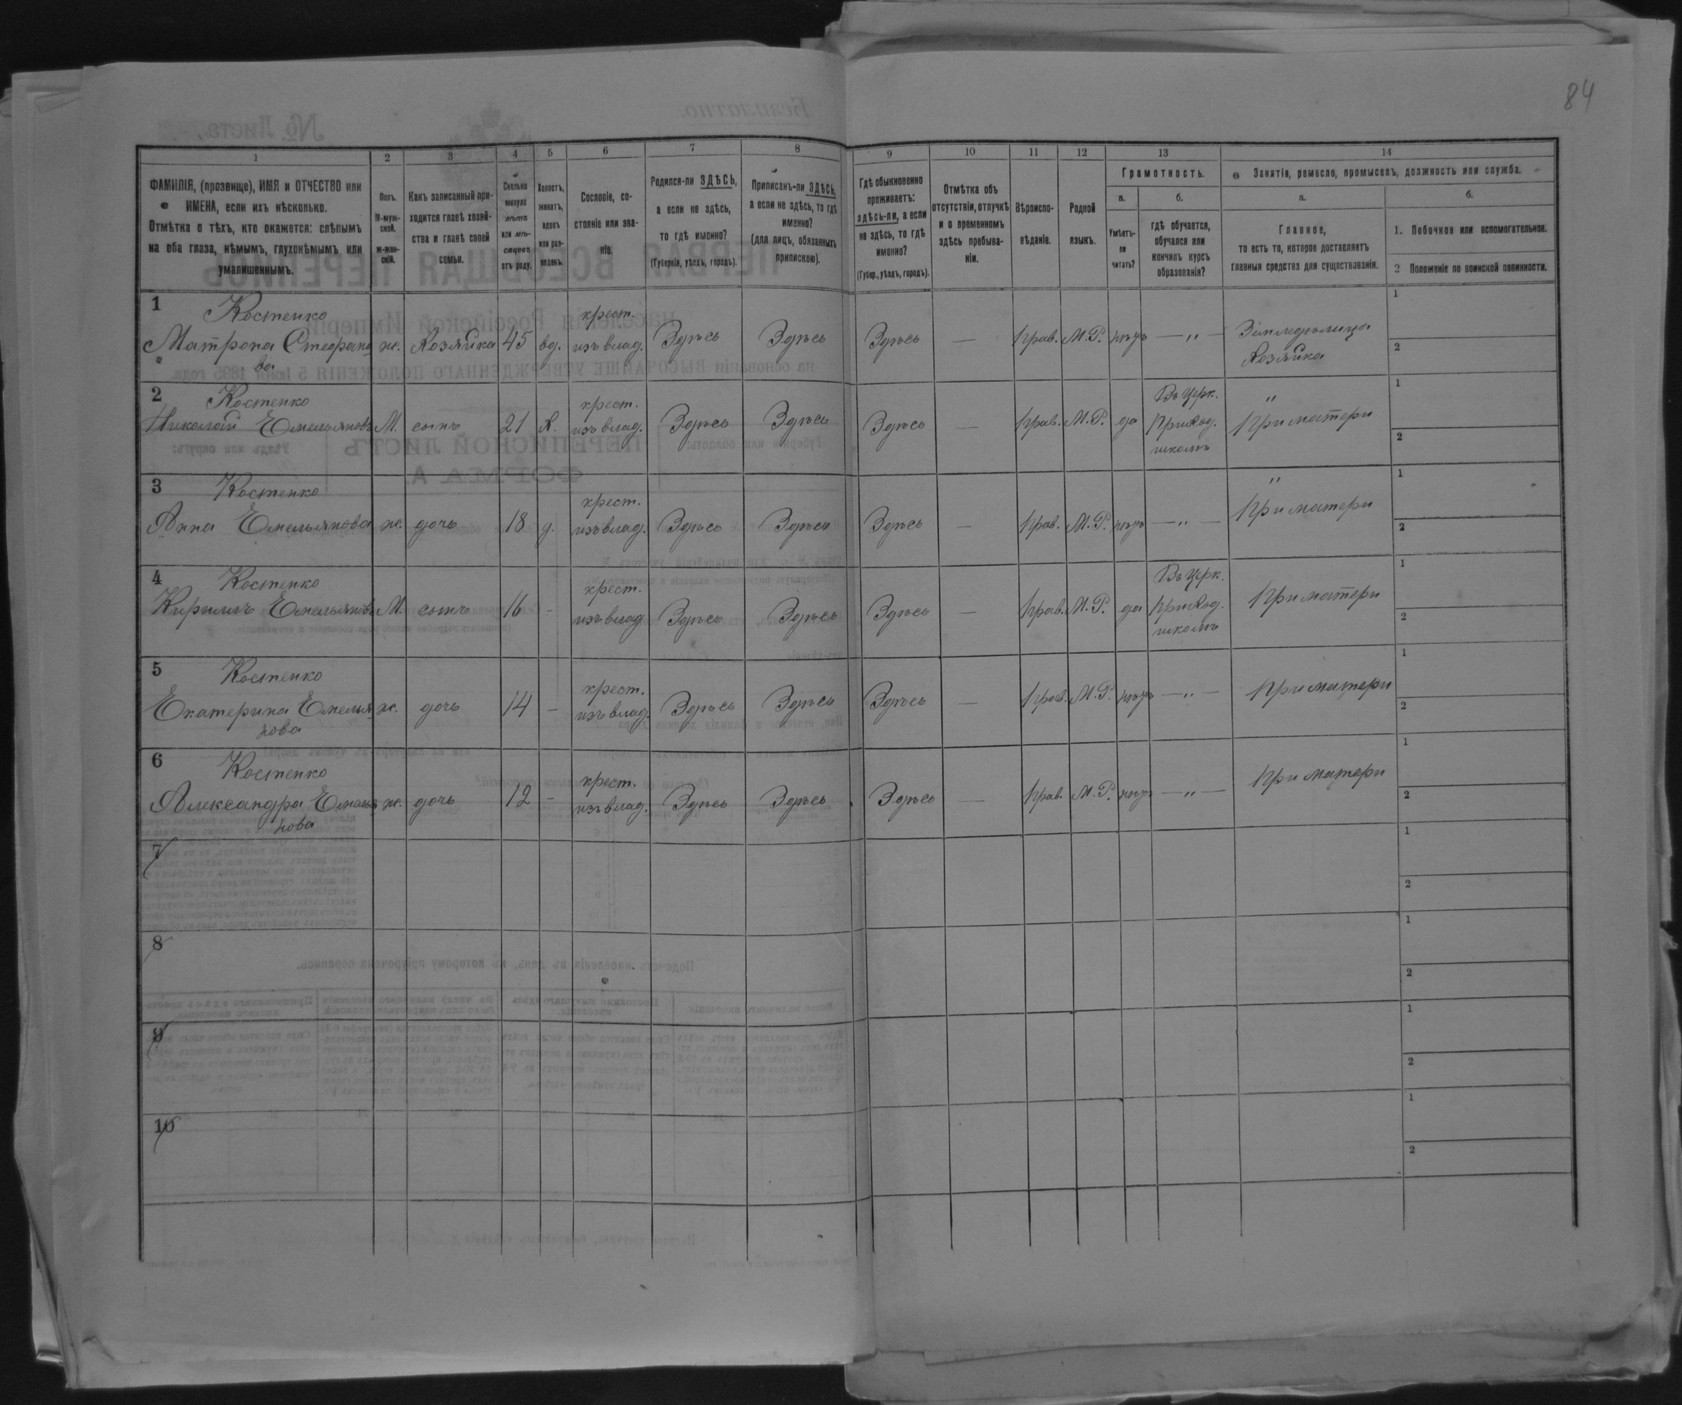 84
1 2 3 4 5 6 7 8 9 10 11 12 13 14
ФАМИЛІЯ, (прозвище), ИМЯ и ОТЧЕСТВО или
ИМЕНА, если ихъ нѣсколько.
Отмѣтка о тѣхъ, кто окажется: слѣпымъ
на оба глаза, нѣмымъ, глухонѣмымъ или
умалишеннымъ.
Полъ.
М-муж-
ской.
ж-жен-
скій.
Какъ записанный при-
ходится главѣ хозяй-
ства и главѣ своей
семьи.
Сколько
минуло
лѣтъ
или мѣ-
сяцевъ
отъ роду.
Холостъ,
женатъ,
вдовъ
или раз-
веденъ.
Сословіе, со-
стояніе или зва-
ніе.
Родился-ли ЗДѢСЬ,
а если не здѣсь,
то гдѣ именно?
(Губернія, уѣздъ, городъ).
Приписанъ-ли ЗДѢСЬ,
а если не здѣсь, то гдѣ
именно?
(для лицъ, обязанныхъ
припискою).
Гдѣ обыкновенно
проживаетъ:
здѣсь-ли, а если
не здѣсь, то гдѣ
именно?
(Губер., уѣздъ, городъ).
Отмѣтка объ
отсутствіи, отлучкѣ
и о временномъ
здѣсь пребыва-
ніи.
Вѣроиспо-
вѣданіе.
Родной
языкъ.
Грамотность.
а. б.
Умѣетъ-
ли
читать?
гдѣ обучается,
обучался или
кончилъ курсъ
образованія?
Занятія, ремесло, промыселъ, должность или служба.
а. б.
Главное,
то есть то, которое доставляетъ
главныя средства для существованія.
1. Побочное или вспомогательное.
2 Положеніе по воинской повинности.
1 Костенко крест. 1
Матрона Стефано ж. Хозяйка 45 вд. изъ влад. Здѣсь Здѣсь Здѣсь — Прав. М.Р. нѣтъ — „ — Земледѣлица
ва Хозяйка 2
2 Костенко крест. Въ Церк. „ 1
Николай Емельяновъ М. сынъ 21 х. изъ влад. Здѣсь Здѣсь Здѣсь — Прав. М.Р. да Приход. При матери
школѣ 2
3 Костенко крест. „ 1
Анна Емельянова ж. дочь 18 д. изъ влад. Здѣсь Здѣсь Здѣсь — Прав. М.Р. нѣтъ — „ — При матери 2
4 Костенко крест. Въ Церк. 1
Кириллъ Емельяновъ М. сынъ 16 - изъ влад. Здѣсь Здѣсь Здѣсь — Прав. М.Р. да Приход. При матери
школѣ 2
5 Костенко крест. 1
Екатерина Емелья ж. дочь 14 - изъ влад. Здѣсь Здѣсь Здѣсь — Прав. М.Р. нѣтъ — „ — При матери
нова 2
6 Костенко крест. 1
Александра Емелья ж. дочь 12 - изъ влад. Здѣсь Здѣсь Здѣсь — Прав. М.Р. нѣтъ — „ — При матери
нова 2
7 1
2
8 1
2
9 1
2
10 1
2